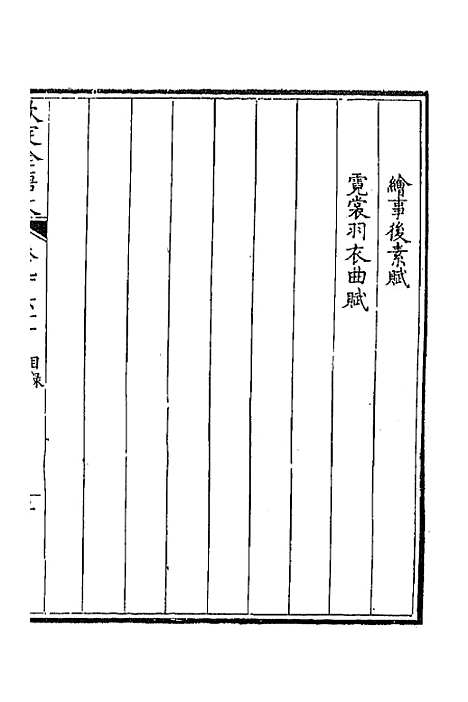 繪事後素賦
霓裳羽衣曲賦
目錄